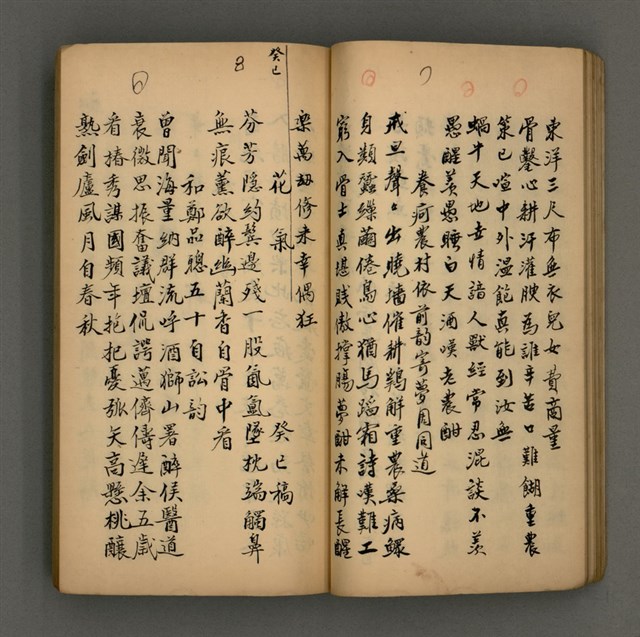 東洋三尺布無衣兒女費商量
骨鑿心耕汗灌腴為誰辛苦口難餬重農
策已喧中外溫飽真能到汝無
蝸牛天地無情諳人獸經常忍混談不羨
愚醒羨愚睡白天酒嘆老農酣
養疴農村依前韵寄夢周同道
戒旦聲聲出曉墻催耕鵝解重農桑病鰥
身類蠶繰繭倦鳥心猶馬蹈霜詩嘆難工
窮入骨士真堪賤傲撐腸夢酣未解長醒
樂萬劫修來幸偶狂
癸巳
花氣 癸巳稿
芬芳隱約鬢邊殘一股氤氳墜枕端觸鼻
無痕薰欲醉幽蘭香自骨中看
和鄭品聰五十自訟韵
曾聞海量納群流呼酒獅山署醉侯醫道
衰微思振奮議壇侃諤邁儕儔遲余五歲
看椿秀謀國頻年抱杞憂弧矢高懸桃釀
熟劍廬風月自春秋
7
8
6